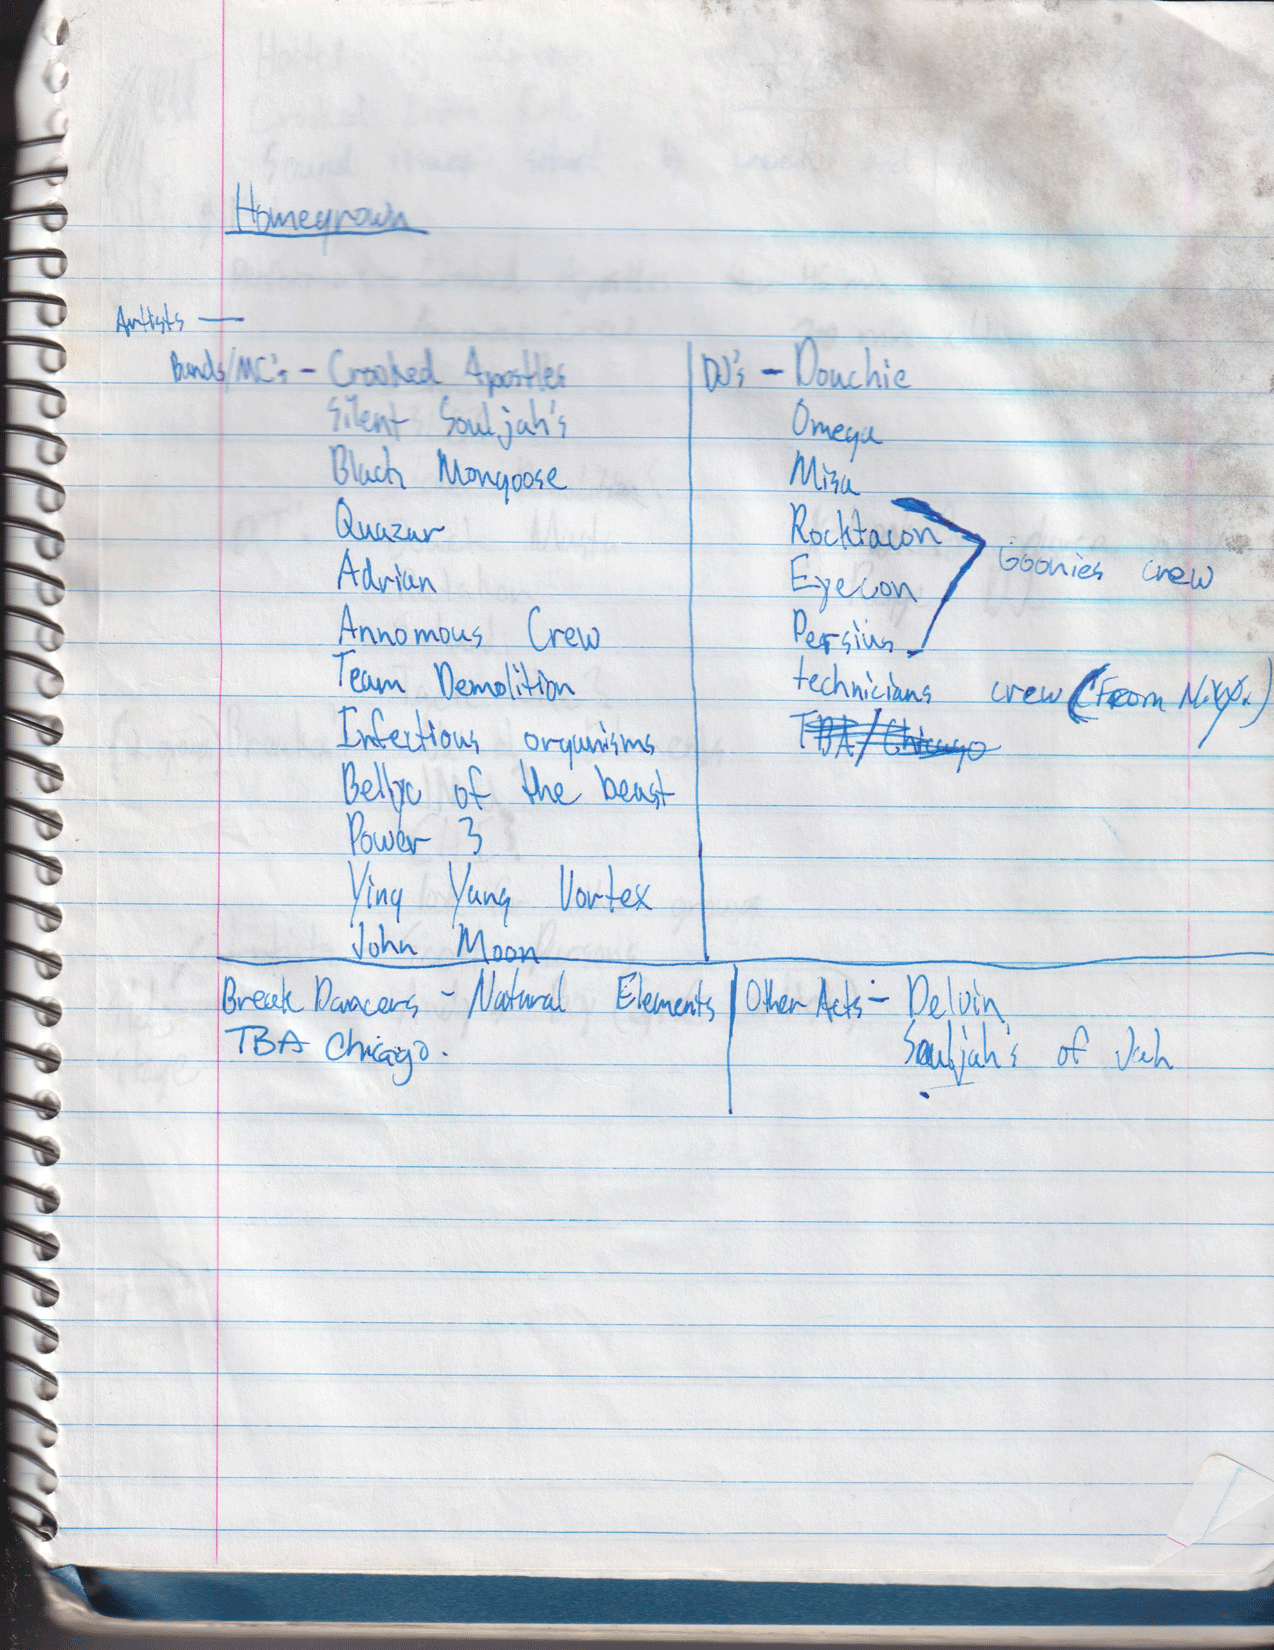 Homegrown
Artists —
Bands/MC's - Crooked Apostles
Silent Souljah's
Black Mongoose
Quazar
Adrian
Annomous Crew
Team Demolition
Infectious organisms
Belly of the beast
Power 3
Ying Yang Vortex
John Moon
DJ's - Douchie
Omega
Misa
Rocktacon
Eyecon
Persius
Goonies crew
technicians crew (From N.Y.)
TBA/Chicago
Break Dancers - Natural Elements
TBA Chicago.
Other Acts - Delvin
Souljah's of Jah